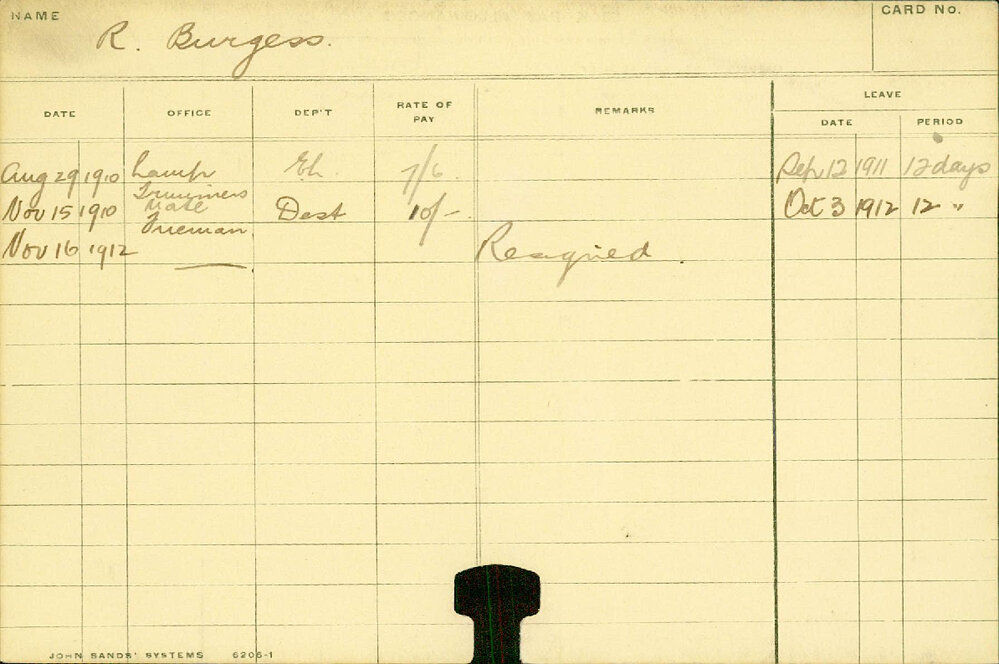 NAME R. Burgess. CARD No.
LEAVE
DATE OFFICE DEP'T RATE OF PAY REMARKS DATE PERIOD
Aug 29 1910 Lamp El. 7/6 Sep 12 1911 12 days
Trimmers
Nov 15 1910 Mate Dest 10/- Oct 3 1912 12 "
Fireman
Nov 16 1912 — Resigned.
JOHN SANDS' SYSTEMS 6206-1